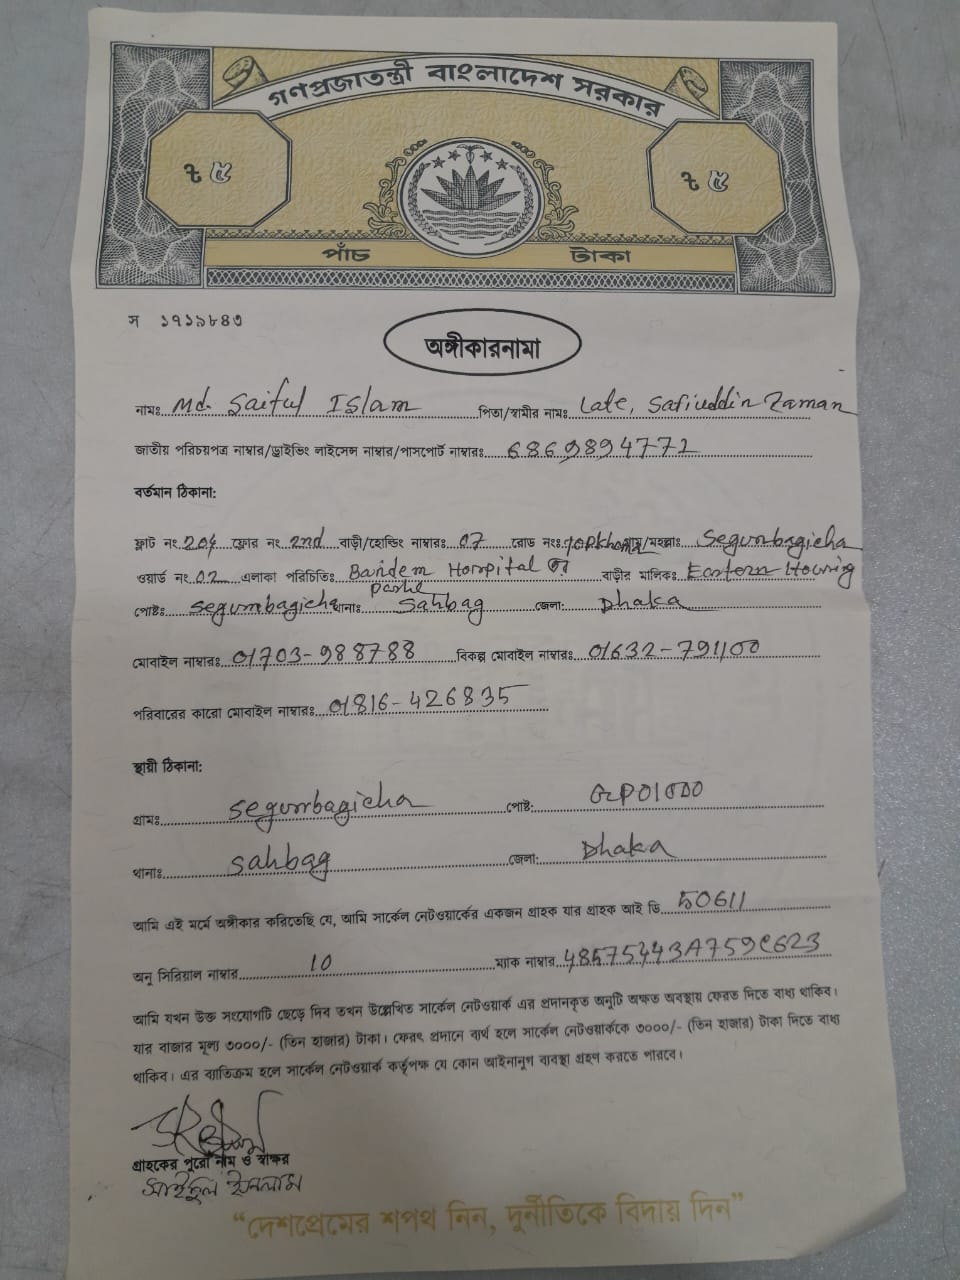 গণপ্রজাতন্ত্রী বাংলাদেশ সরকার
৳ ৫ ৳ ৫
পাঁচ টাকা
স ১৭১৯৮৪৩
অঙ্গীকারনামা
নামঃ Md. Saiful Islam পিতা/স্বামীর নামঃ Late, Safiuddin Zaman
জাতীয় পরিচয়পত্র নাম্বার/ড্রাইভিং লাইসেন্স নাম্বার/পাসপোর্ট নাম্বারঃ 6869894772
বর্তমান ঠিকানা:
ফ্লাট নং 204 ফ্লোর নং 2nd বাড়ী/হোল্ডিং নাম্বারঃ 07 রোড নংঃ Topkhana গ্রাম/মহল্লাঃ Segunbagicha
ওয়ার্ড নং 02 এলাকা পরিচিতিঃ Bardem Hospital এর বাড়ীর মালিকঃ Eastern Housing
পোষ্টঃ Segunbagicha থানাঃ Sahbag জেলা: Dhaka
মোবাইল নাম্বারঃ 01703-988788 বিকল্প মোবাইল নাম্বারঃ 01632-791100
পরিবারের কারো মোবাইল নাম্বারঃ 01816-426835
স্থায়ী ঠিকানা:
গ্রামঃ Segunbagicha পোষ্ট: GPO1000
থানাঃ Sahbag জেলা: Dhaka
আমি এই মর্মে অঙ্গীকার করিতেছি যে, আমি সার্কেল নেটওয়ার্কের একজন গ্রাহক যার গ্রাহক আই ডি 50611
অনু সিরিয়াল নাম্বার 10 ম্যাক নাম্বার 48575443A759C623
আমি যখন উক্ত সংযোগটি ছেড়ে দিব তখন উল্লেখিত সার্কেল নেটওয়ার্ক এর প্রদানকৃত অনুটি অক্ষত অবস্থায় ফেরত দিতে বাধ্য থাকিব।
যার বাজার মূল্য ৩০০০/- (তিন হাজার) টাকা। ফেরৎ প্রদানে ব্যর্থ হলে সার্কেল নেটওয়ার্ককে ৩০০০/- (তিন হাজার) টাকা দিতে বাধ্য
থাকিব। এর ব্যতিক্রম হলে সার্কেল নেটওয়ার্ক কর্তৃপক্ষ যে কোন আইনানুগ ব্যবস্থা গ্রহণ করতে পারবে।
গ্রাহকের পুরো নাম ও স্বাক্ষর
সাইফুল ইসলাম
“দেশপ্রেমের শপথ নিন, দুর্নীতিকে বিদায় দিন”